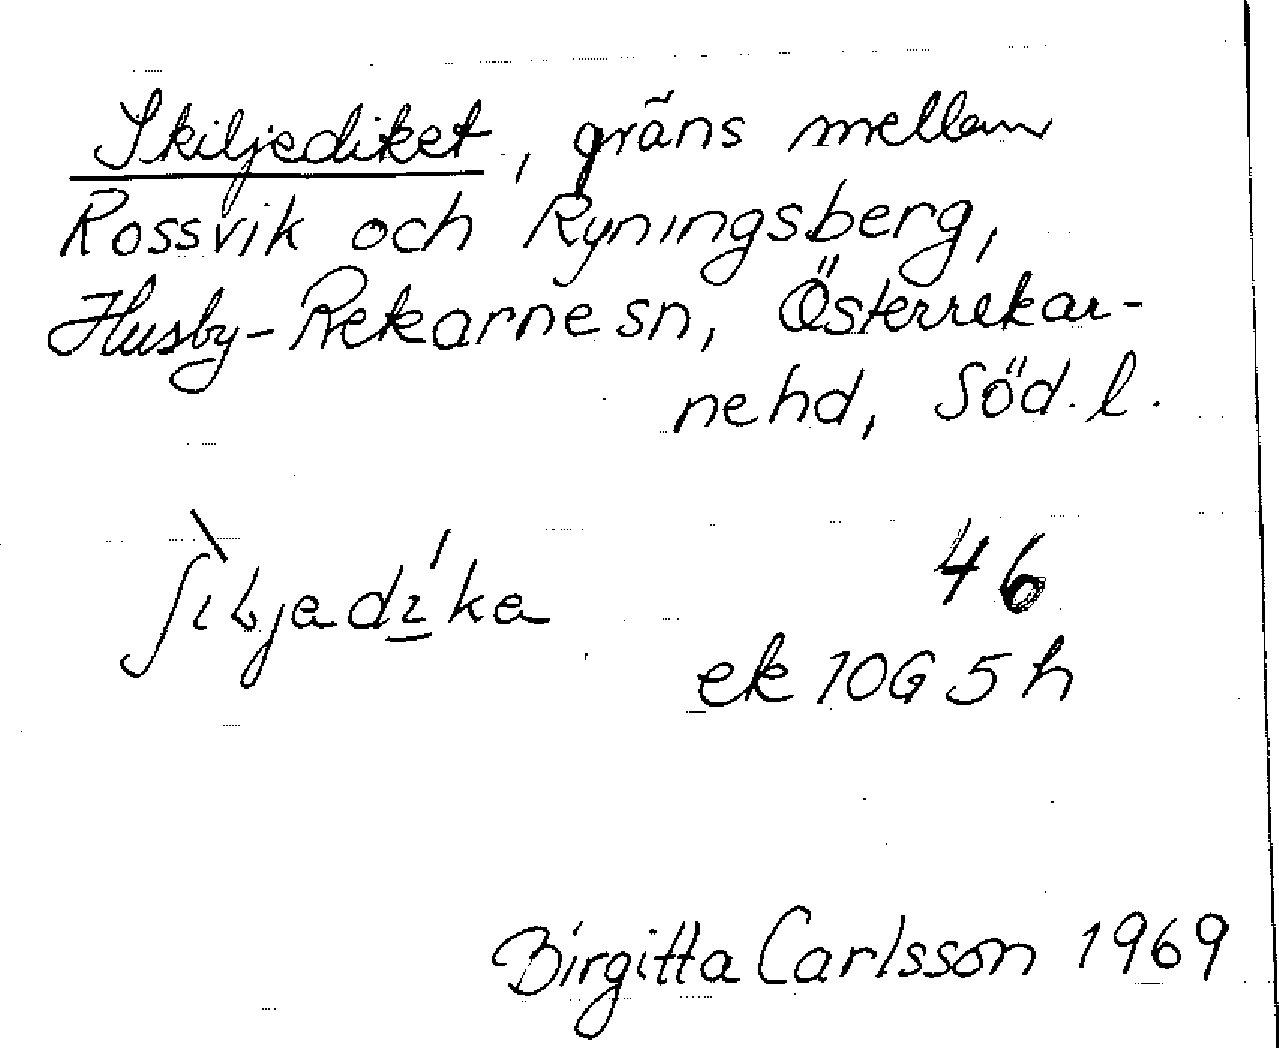 Skiljediket, gräns mellan
Rossvik och Ryningsberg,
Husby-Rekarne sn, Österrekar-
ne hd, Söd. l.
46
ek 10G 5h
Birgitta Carlsson 1969